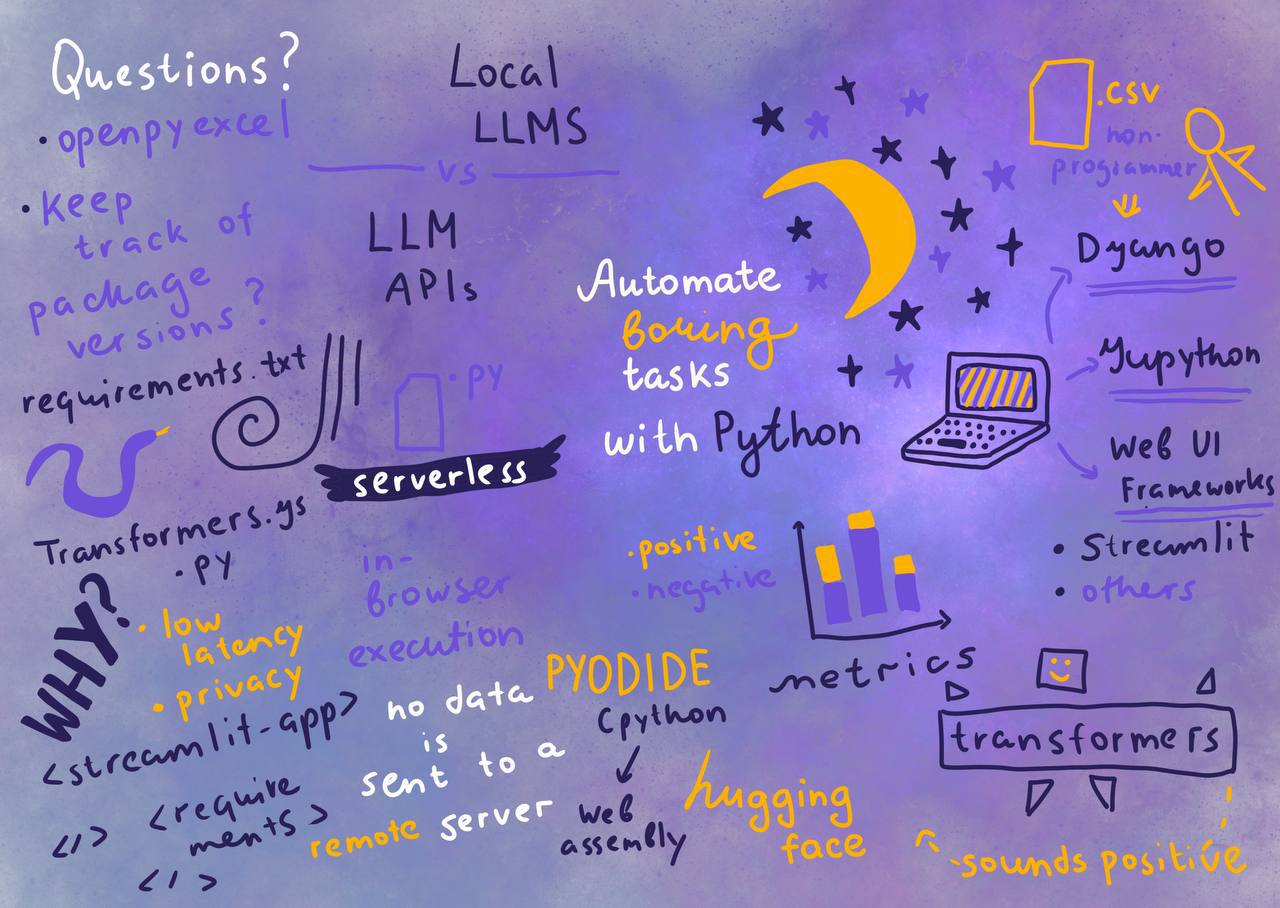 Questions?
• openpyexcel
• Keep
track of
package
versions?
requirements.txt
Transformers.ys
• py
WHY?
• low
latency
• privacy
<streamlit-app>
<require
ments>
</>
</>
Local
LLMS
vs
LLM
APIs
.py
serverless
in-
browser
execution
no data
is
sent to a
remote server
Automate
boring
tasks
with Python
• positive
• negative
metrics
PYODIDE
Cpython
web
assembly
hugging
face
.csv
non-
programmer
Dyango
Yupython
Web UI
Frameworks
• Streamlit
• others
transformers
sounds positive